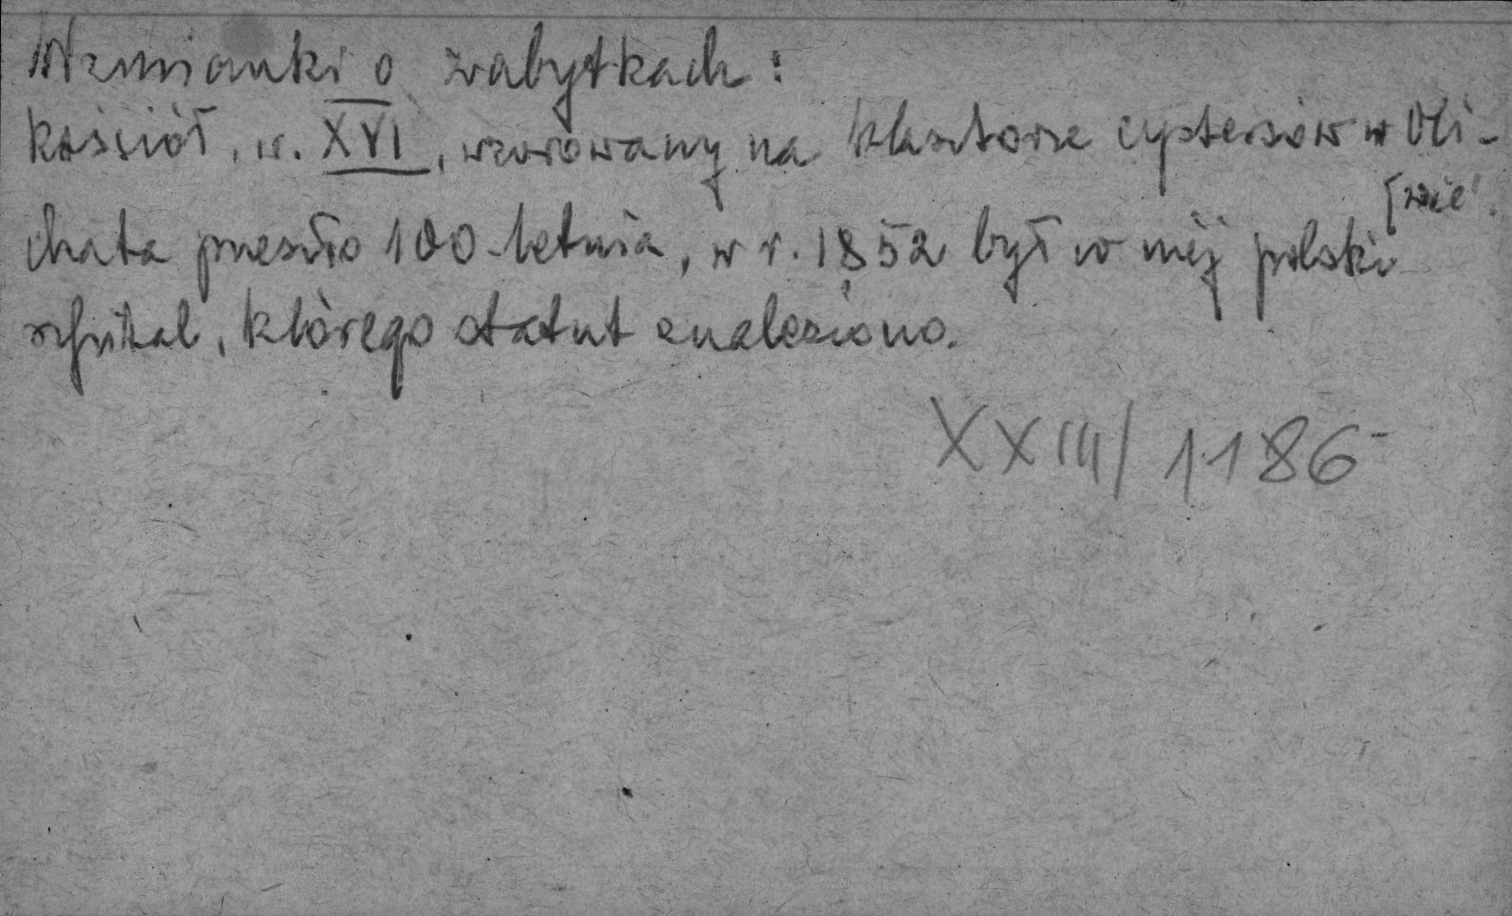 Wzmianki o zabytkach:
kościół, w. XVI, wzorowany na klasztorze cystersów w Oli-
[wie.
chata przeszło 100-letnia, w r. 1852 był w niej polski
szpital, którego statut znaleziono.
XXIII/1186